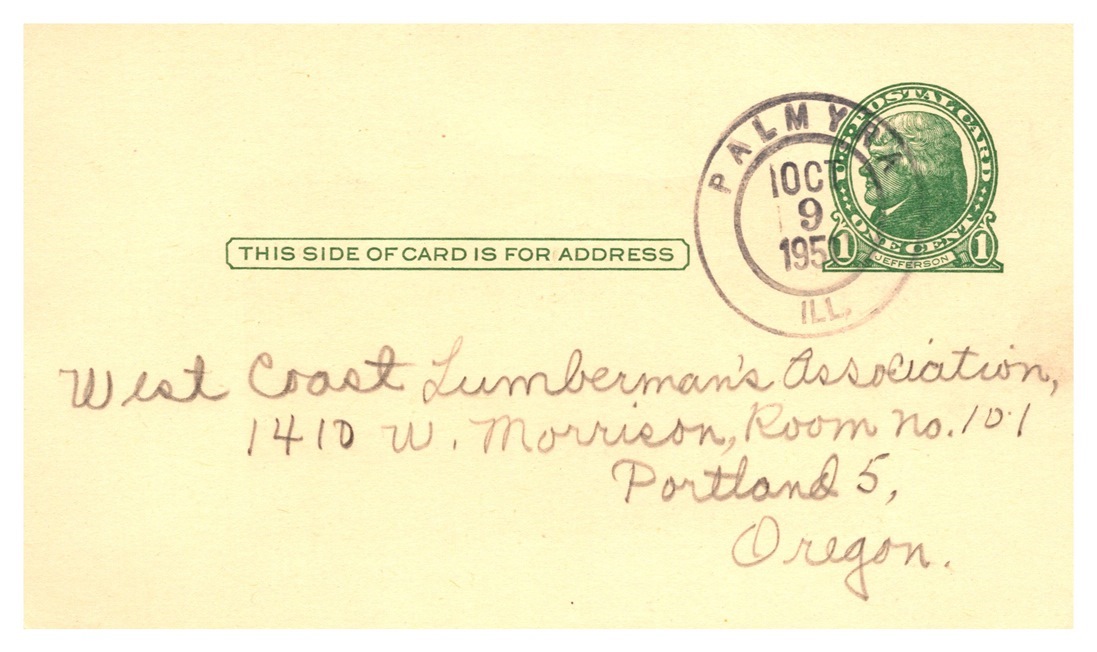 U.S. POSTAL CARD
PALMYRA
OCT
9
ILL.
1 ONE CENT 1
JEFFERSON
THIS SIDE OF CARD IS FOR ADDRESS
West Coast Lumberman's Association,
1410 W. Morrison, Room No. 101
Portland 5,
Oregon.